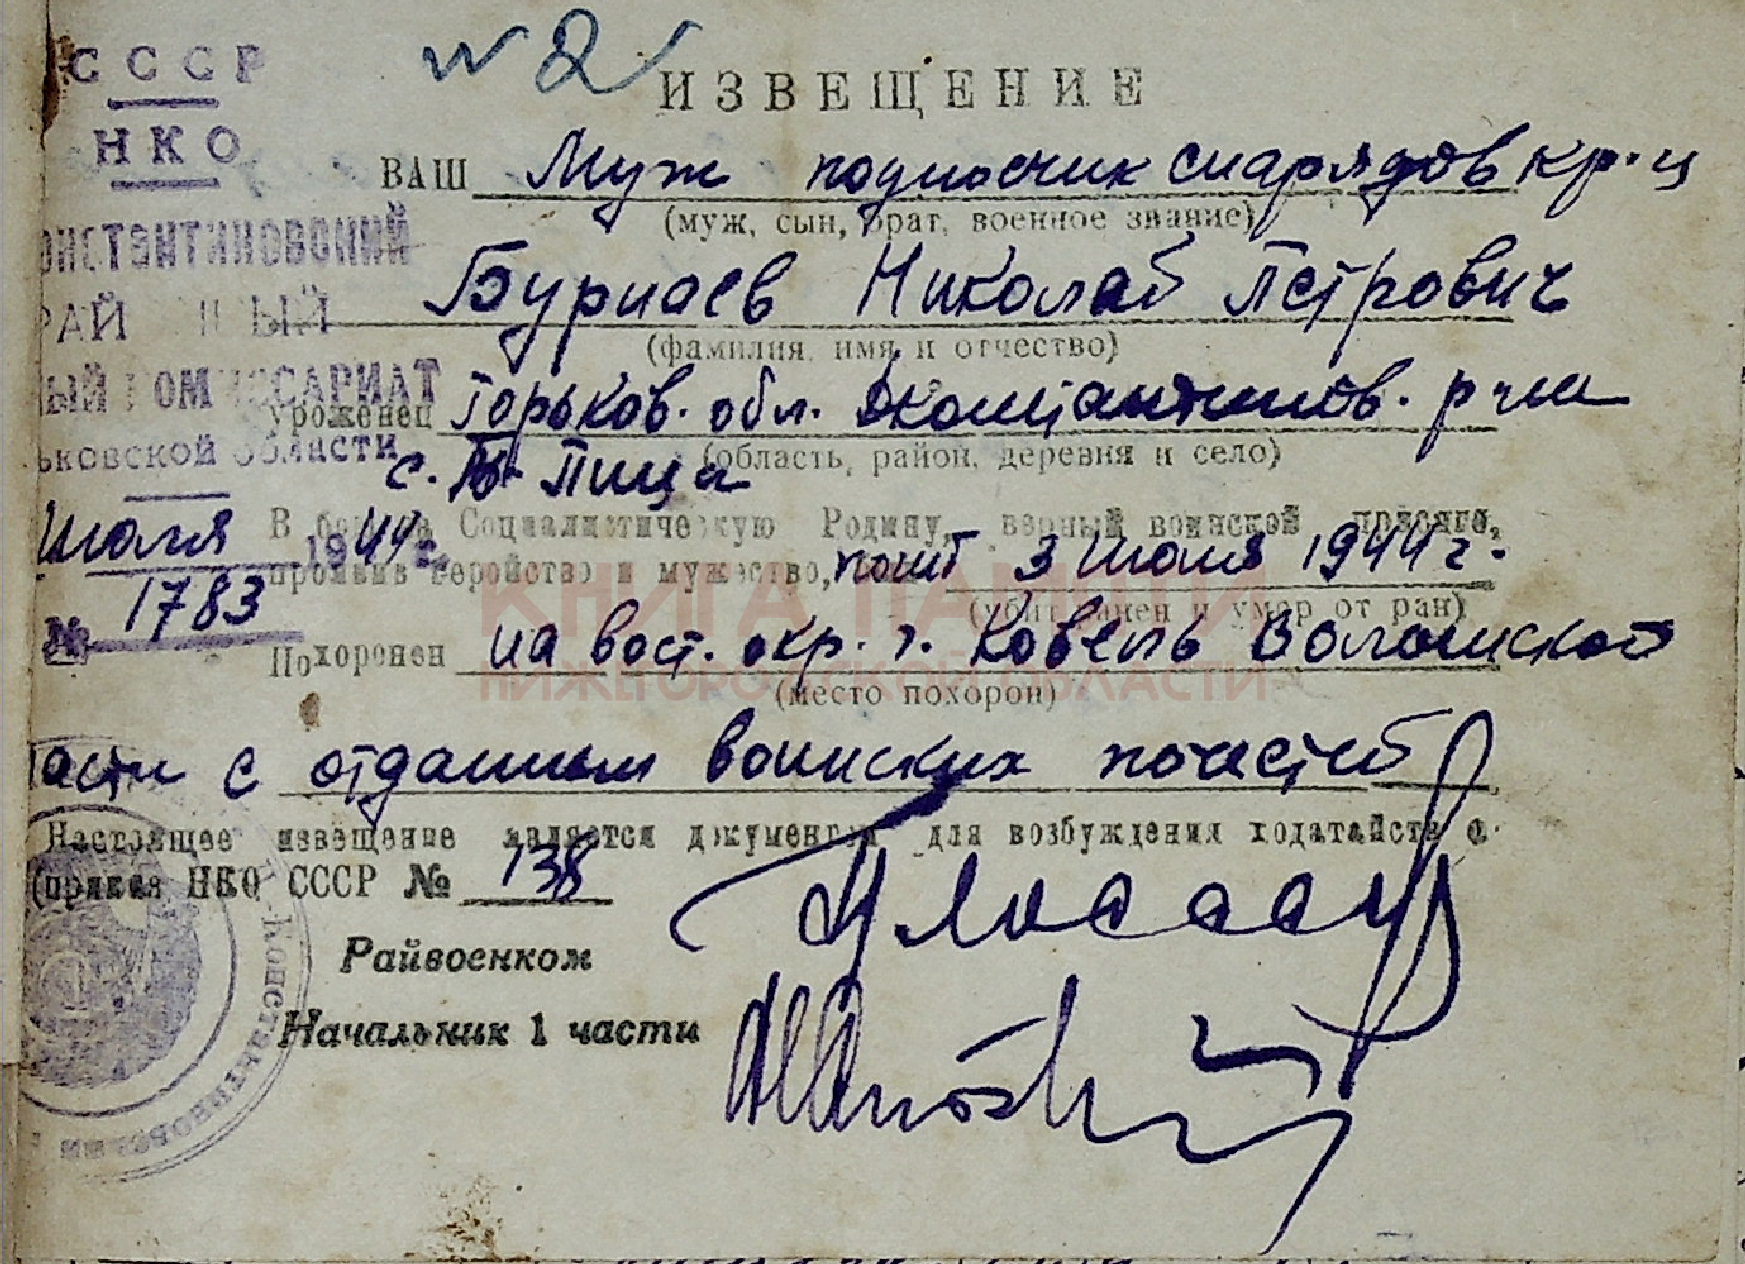 № 2
ИЗВЕЩЕНИЕ
СССР
НКО
ОНСТАНТИНОВСКИЙ
РАЙ НЫЙ
ЫЙ КОМИССАРИАТ
ЬКОВСКОЙ ОБЛАСТИ
Июля 1944 г.
№ 1783
ВАШ Муж подносчик снарядов кр-ц
(муж, сын, брат, военное звание)
Бурнаев Николай Петрович
(фамилия, имя и отчество)
уроженец Горьков. обл. Дконстантинов. р-на
(область, район, деревня и село)
с. Пица
В бою за Социалистическую Родину, верный воинской присяге,
проявив геройство и мужество, погиб 3 июля 1944 г.
(убит, ранен и умер от ран)
Похоронен на вост. окр. г. Ковель Волынской
(место похорон)
асти с отданием воинских почестей
Настоящее извещение является документом для возбуждения ходатайств о
(приказ НКО СССР № 138
Райвоенком
Начальник 1 части
КНИГА ПАМЯТИ
НИЖЕГОРОДСКОЙ ОБЛАСТИ